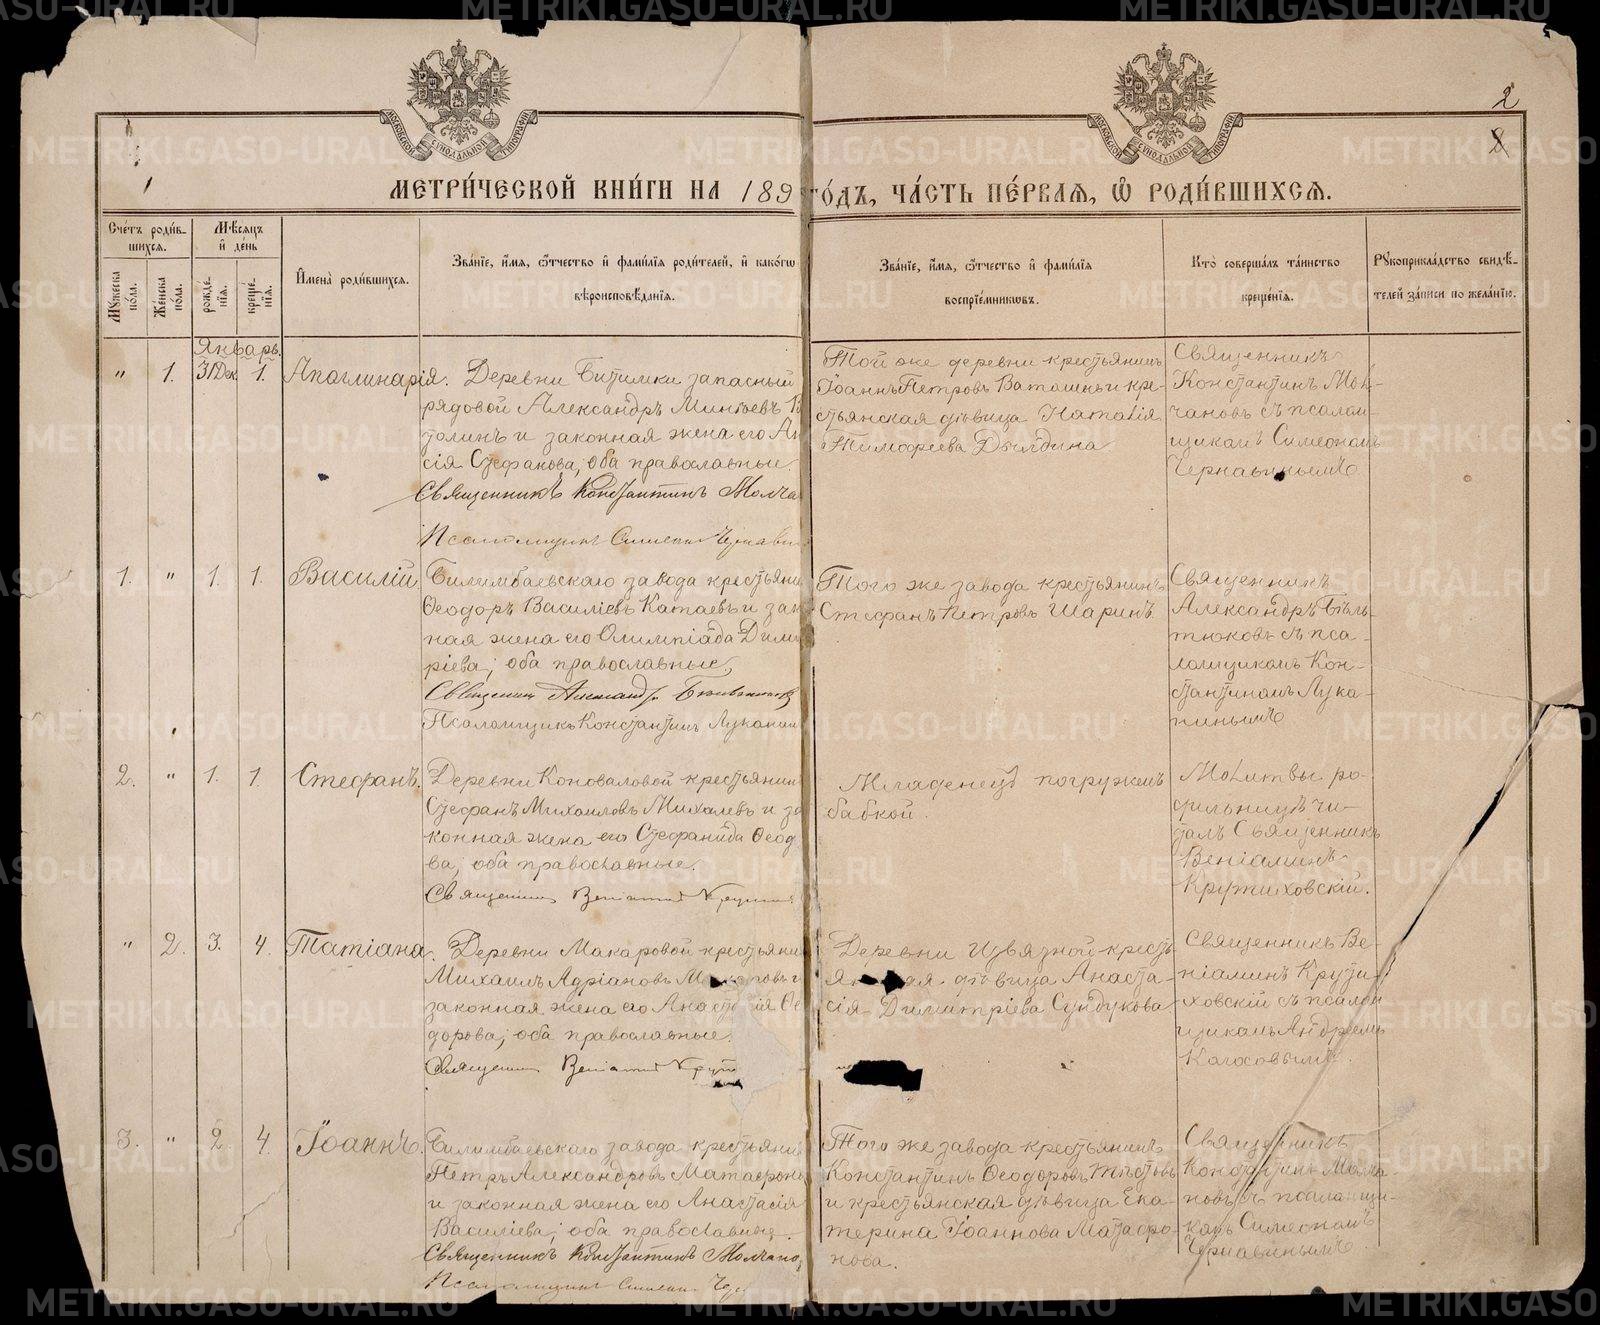 2
8
МОСКОВСКОЙ СѴНОДАЛЬНОЙ ТИПОГРАФІИ
МОСКОВСКОЙ СѴНОДАЛЬНОЙ ТИПОГРАФІИ
МЕТРИ́ЧЕСКОЙ КНИ́ГИ НА 189 ГО́ДЪ, ЧА́СТЬ ПЕ́РВАѦ, Ѡ҆ РОДИ́ВШИХСѦ.
Сче́тъ роди́в-
шихсѧ.
Мꙋ́жеска по́ла.
Же́нска по́ла.
Мѣ́сѧцъ и҆ де́нь
рожде́-
нїѧ.
креще́-
нїѧ.
И҆мена̀ роди́вшихсѧ.
Зва́нїе, и҆́мѧ, ѻ҆́тчество и҆ фами́лїѧ роди́телей, и҆ како́гѡ
вѣроисповѣ́данїѧ.
Зва́нїе, и҆́мѧ, ѻ҆́тчество и҆ фами́лїѧ
воспрїе́мникѡвъ.
Кто̀ соверша́лъ та́инство
креще́нїѧ.
Рꙋкоприкла́дство свидѣ́-
телей за́писи по жела́нїю.
Январь.
" 1. 31 Дек. 1. Апоглинарія. Деревни Битимки запасный
рядовой Александръ Минѣевъ
толинъ и законная жена его
сія Стефанова, оба православные.
Священникъ Константинъ Молча
Псаломщикъ Симеонъ Чернави
Той же деревни крестьянинъ
Іоаннъ Петровъ Ватошинъ и кре-
стьянская дѣвица Наталія
Тимофеева Дылдина
Священникъ
Константинъ Мол-
чановъ съ псалом-
щикомъ Симеономъ
Чернавинымъ
1. " 1. 1. Василій. Билимбаевскаго завода крестьяни
Ѳеодоръ Василіевъ Катаевъ и зак
ная жена его Олимпіада Дими
ріева; оба православные,
Священникъ Александръ Бѣльтюковъ
Псаломщикъ Константинъ Луканин
Того же завода крестьянинъ
Стефанъ Петровъ Шаринъ
Священникъ
Александръ Бѣль-
тюковъ съ пса-
ломщикомъ Кон-
стантиномъ Лука-
нинымъ
2. " 1. 1. Стефанъ. Деревни Коноваловой крестьянин
Стефанъ Михаиловъ Михалевъ и за
конная жена его Стефанида Ѳеод
ва; оба православные.
Священникъ Веніаминъ Крутих
Младенецъ погружёнъ
бабкой.
Молитвы ро-
дильницѣ чи-
талъ Священникъ
Веніаминъ
Крутиховскій.
" 2. 3. 4. Татіана. Деревни Макаровой крестьяни
Михаилъ Адріановъ Макаровъ и
законная жена его Анастасія Ѳео
дорова; оба православные.
Священникъ Веніаминъ Крут
Деревни Извязной кресть
янская дѣвица Анаста-
сія Димитріева Сундукова
Священникъ Ве-
ніаминъ Крути-
ховскій съ псалом
щикомъ Андреемъ
Колосовымъ.
3. " 2. 4. Іоаннъ. Билимбаевскаго завода крестьянин
Петръ Александровъ Матафоно
и законная жена его Анастасія
Василіева; оба православные.
Священникъ Константинъ Молчано
Псаломщикъ Симеонъ Чер
Того же завода крестьянинъ
Константинъ Ѳеодоровъ Тѣстовъ
и крестьянская дѣвица Ека-
терина Іоаннова Матафо-
нова.
Священникъ
Константинъ Молча-
новъ съ псаломщи-
комъ Симеономъ
Чернавинымъ
METRIKI.GASO-URAL.RU